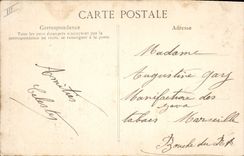 III
CARTE POSTALE
Correspondance
Tous les pays étrangers n'acceptent pas la
correspondance au recto, se renseigner à la poste
Adresse
Amitiés
Madame
Augustine Gay
Manufacture des
tabacs Marseille
Bouche du